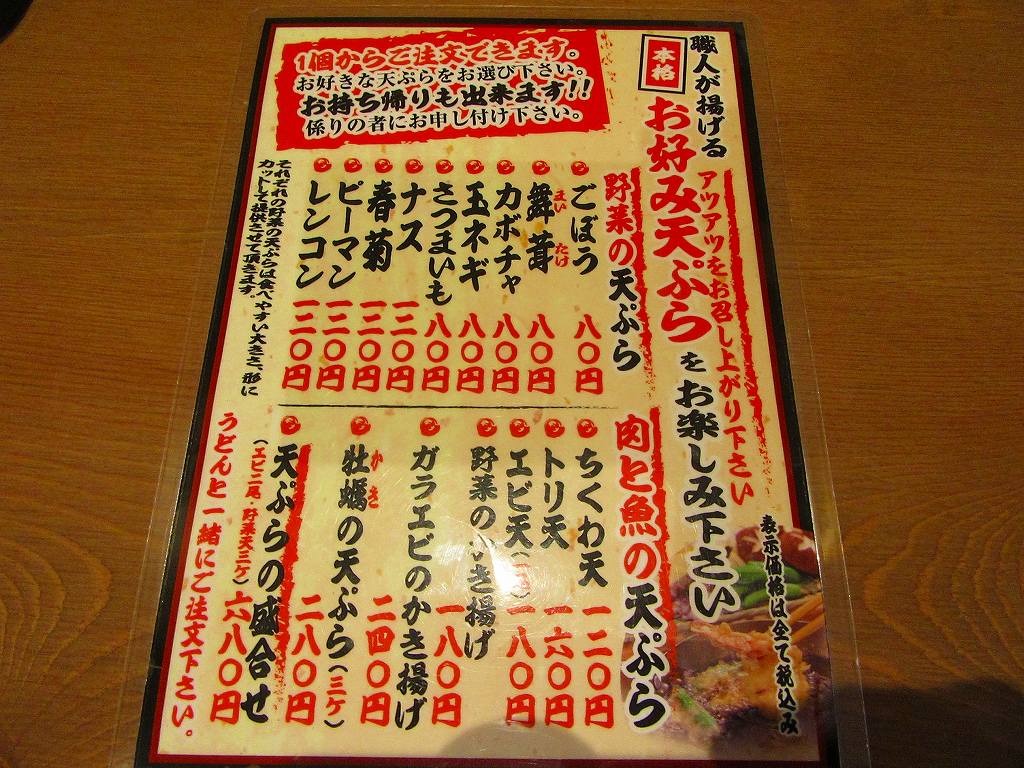 職人が揚げる
本格
お好み天ぷらをお楽しみ下さい
アツアツをお召し上がり下さい
表示価格は全て税込み
1個からご注文できます。
お好きな天ぷらをお選び下さい。
お持ち帰りも出来ます!!
係りの者にお申し付け下さい。
野菜の天ぷら
ごぼう 八〇円
舞茸 まい たけ 八〇円
カボチャ 八〇円
玉ネギ 八〇円
さつまいも 八〇円
ナス 一二〇円
春菊 一二〇円
ピーマン 一二〇円
レンコン 一二〇円
それぞれの野菜の天ぷらは食べやすい大きさ、形に
カットして提供させて頂きます。
肉と魚の天ぷら
ちくわ天 一二〇円
トリ天 一六〇円
エビ天 一八〇円
野菜のかき揚げ 一八〇円
ガラエビのかき揚げ 二四〇円
牡蠣の天ぷら(三ケ) かき 二八〇円
天ぷらの盛合せ
(エビ二尾・野菜天三ケ) 六八〇円
うどんと一緒にご注文下さい。